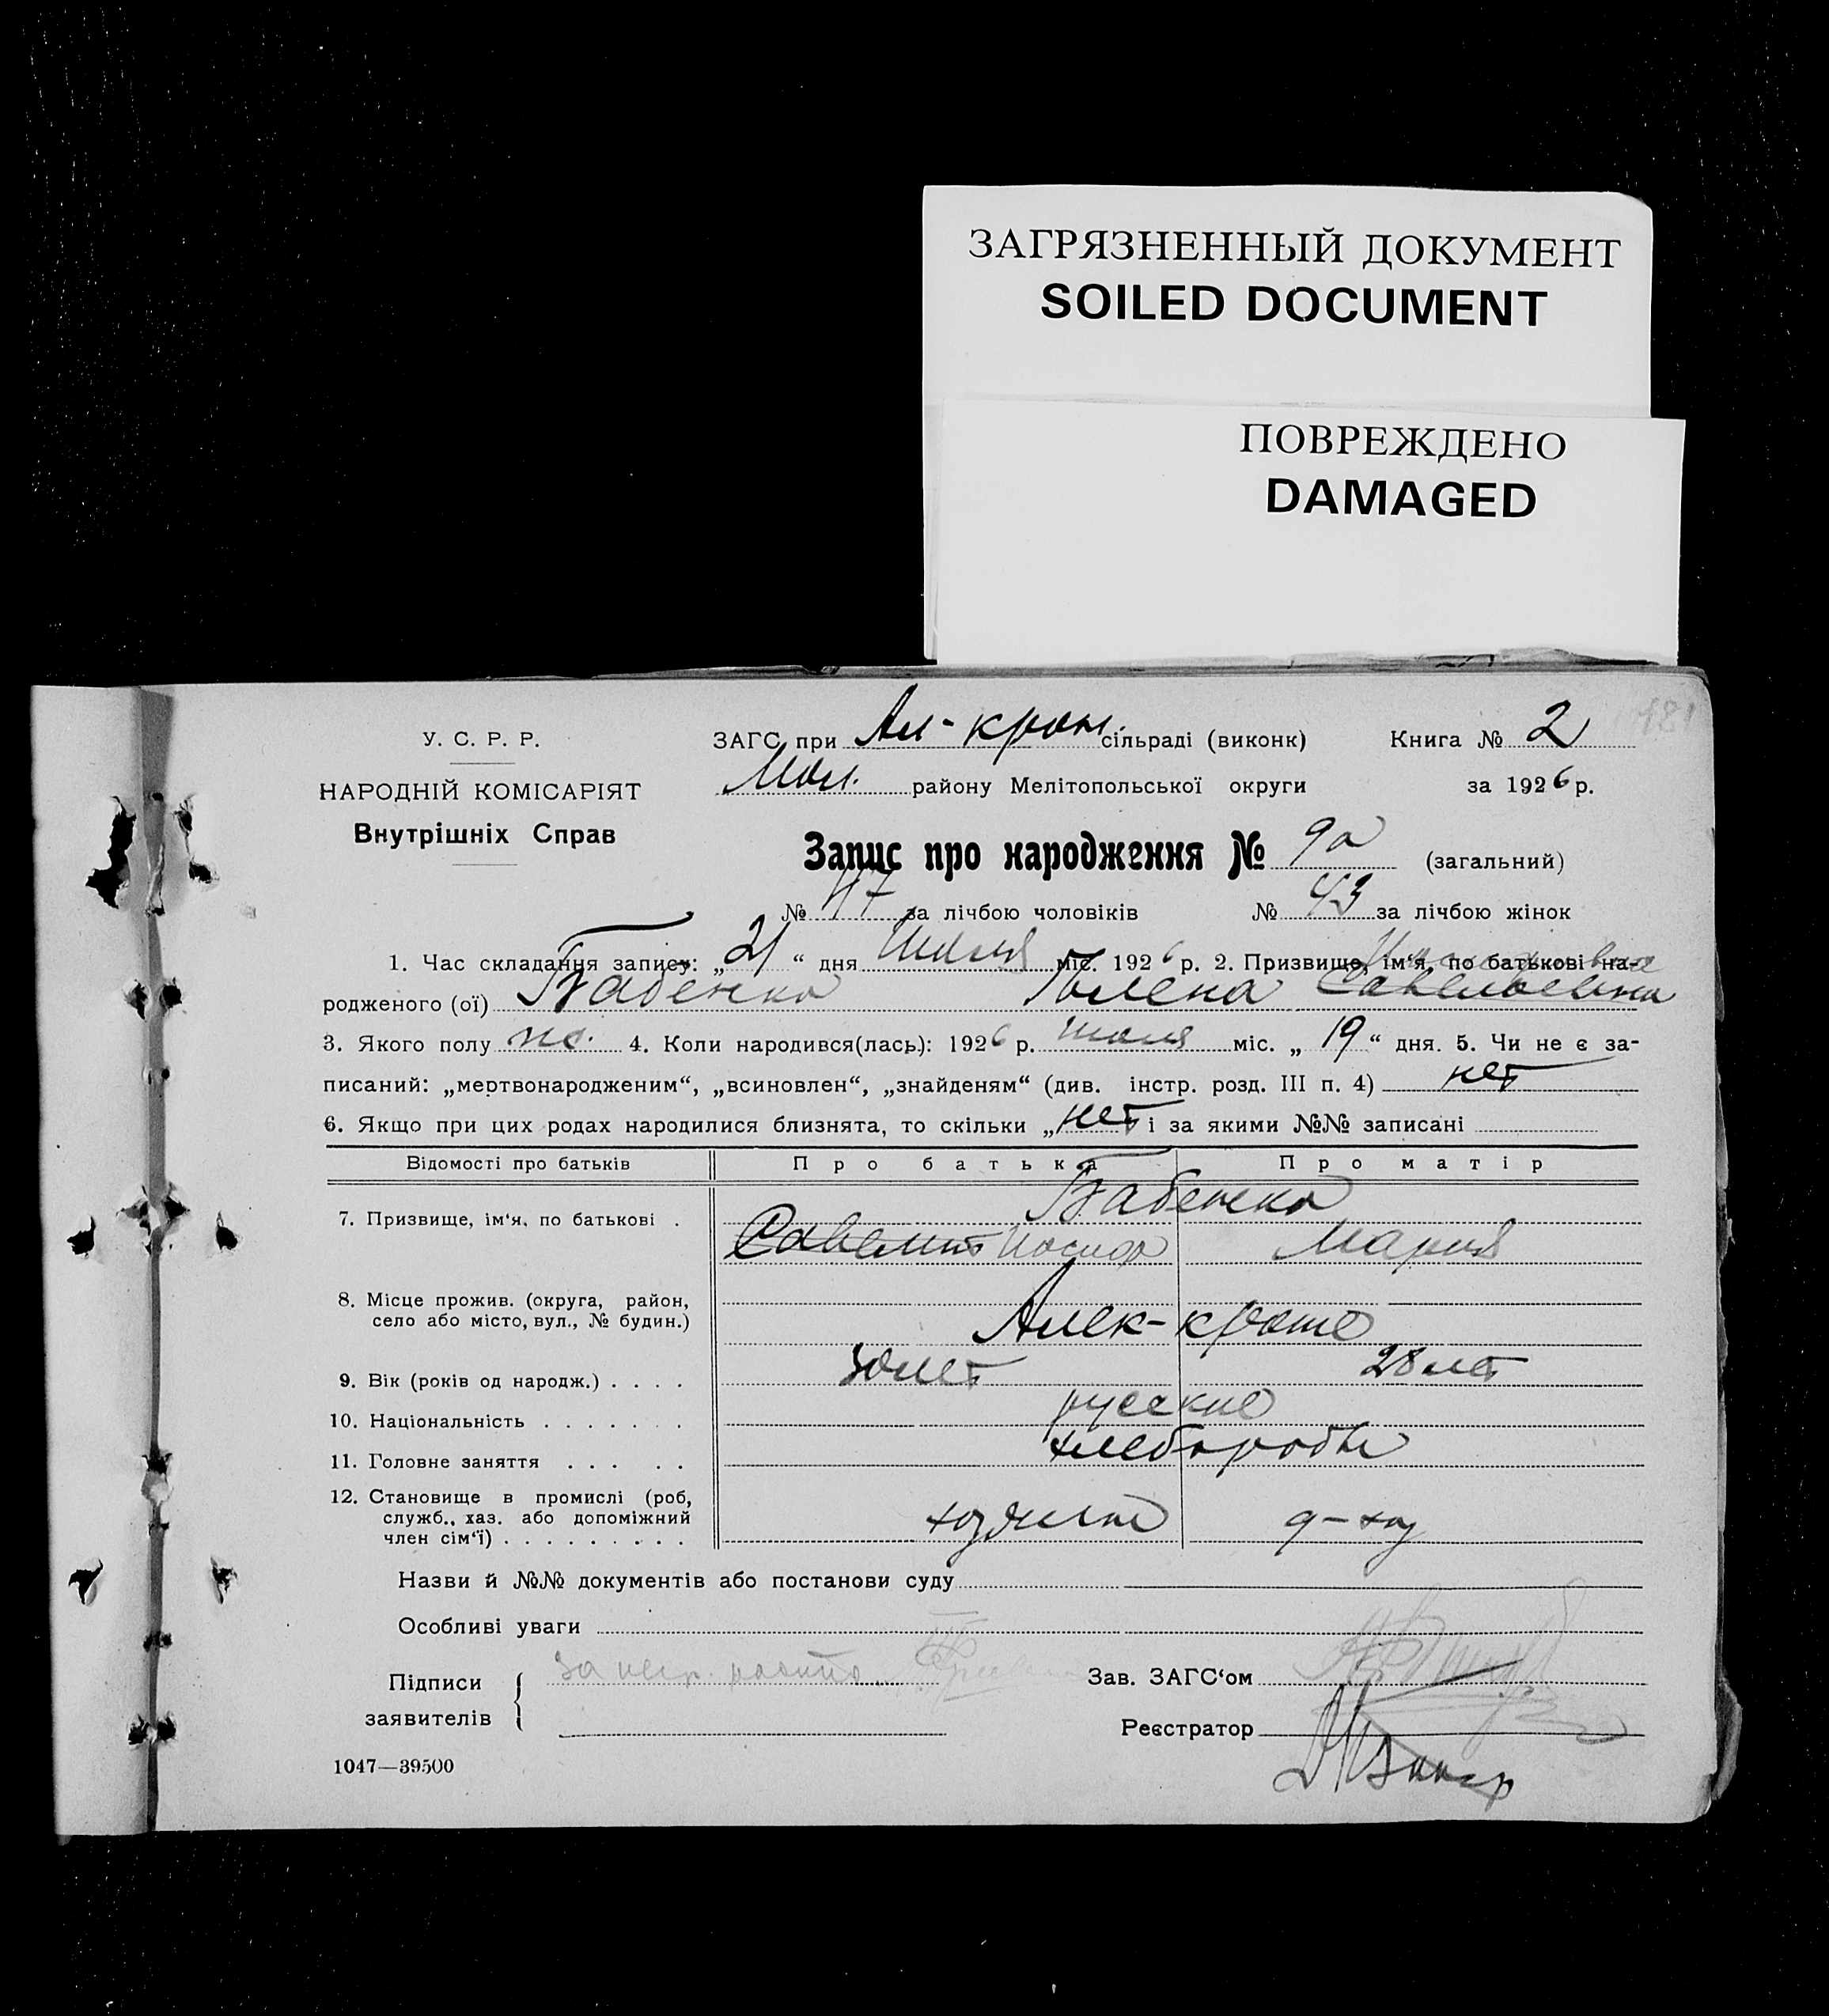 ЗАГРЯЗНЕННЫЙ ДОКУМЕНТ
SOILED DOCUMENT
ПОВРЕЖДЕНО
DAMAGED
У. С. Р. Р.
НАРОДНІЙ КОМІСАРІЯТ
Внутрішніх Справ
ЗАГС при Ал-крон. сільраді (виконк) Книга № 2
Мол. району Мелітопольської округи за 1926 р.
Запис про народження № 90 (загальний)
№ 47 за лічбою чоловіків № 43 за лічбою жінок
1. Час складання запису: „21“ дня Июля міс. 1926 р. 2. Призвище, ім‘я, по батькові на-
родженого (ої) Бабенко Елена Савельевна
3. Якого полу ж. 4. Коли народився(лась): 1926 р. июля міс. „19“ дня. 5. Чи не є за-
писаний: „мертвонародженим“, „всиновлен“, „знайденям“ (див. інстр. розд. III п. 4) нет
6. Якщо при цих родах народилися близнята, то скільки „нет і за якими №№ записані
Відомості про батьків Про батька Про матір
7. Призвище, ім‘я, по батькові . Бабенко
Савелий Иосиф Мария
8. Місце прожив. (округа, район,
село або місто, вул., № будин.) Алек-кроне
9. Вік (років од народж.) . . . . 30 лет 28 лет
10. Національність . . . . . . . русские
11. Головне заняття . . . . . хлебороды
12. Становище в промислі (роб,
служб., хаз. або допоміжний
член сім‘ї) . . . . . . . . .
Назви й №№ документів або постанови суду
Особливі уваги
Підписи
заявителів
Зав. ЗАГС‘ом
Реєстратор
1047—39500